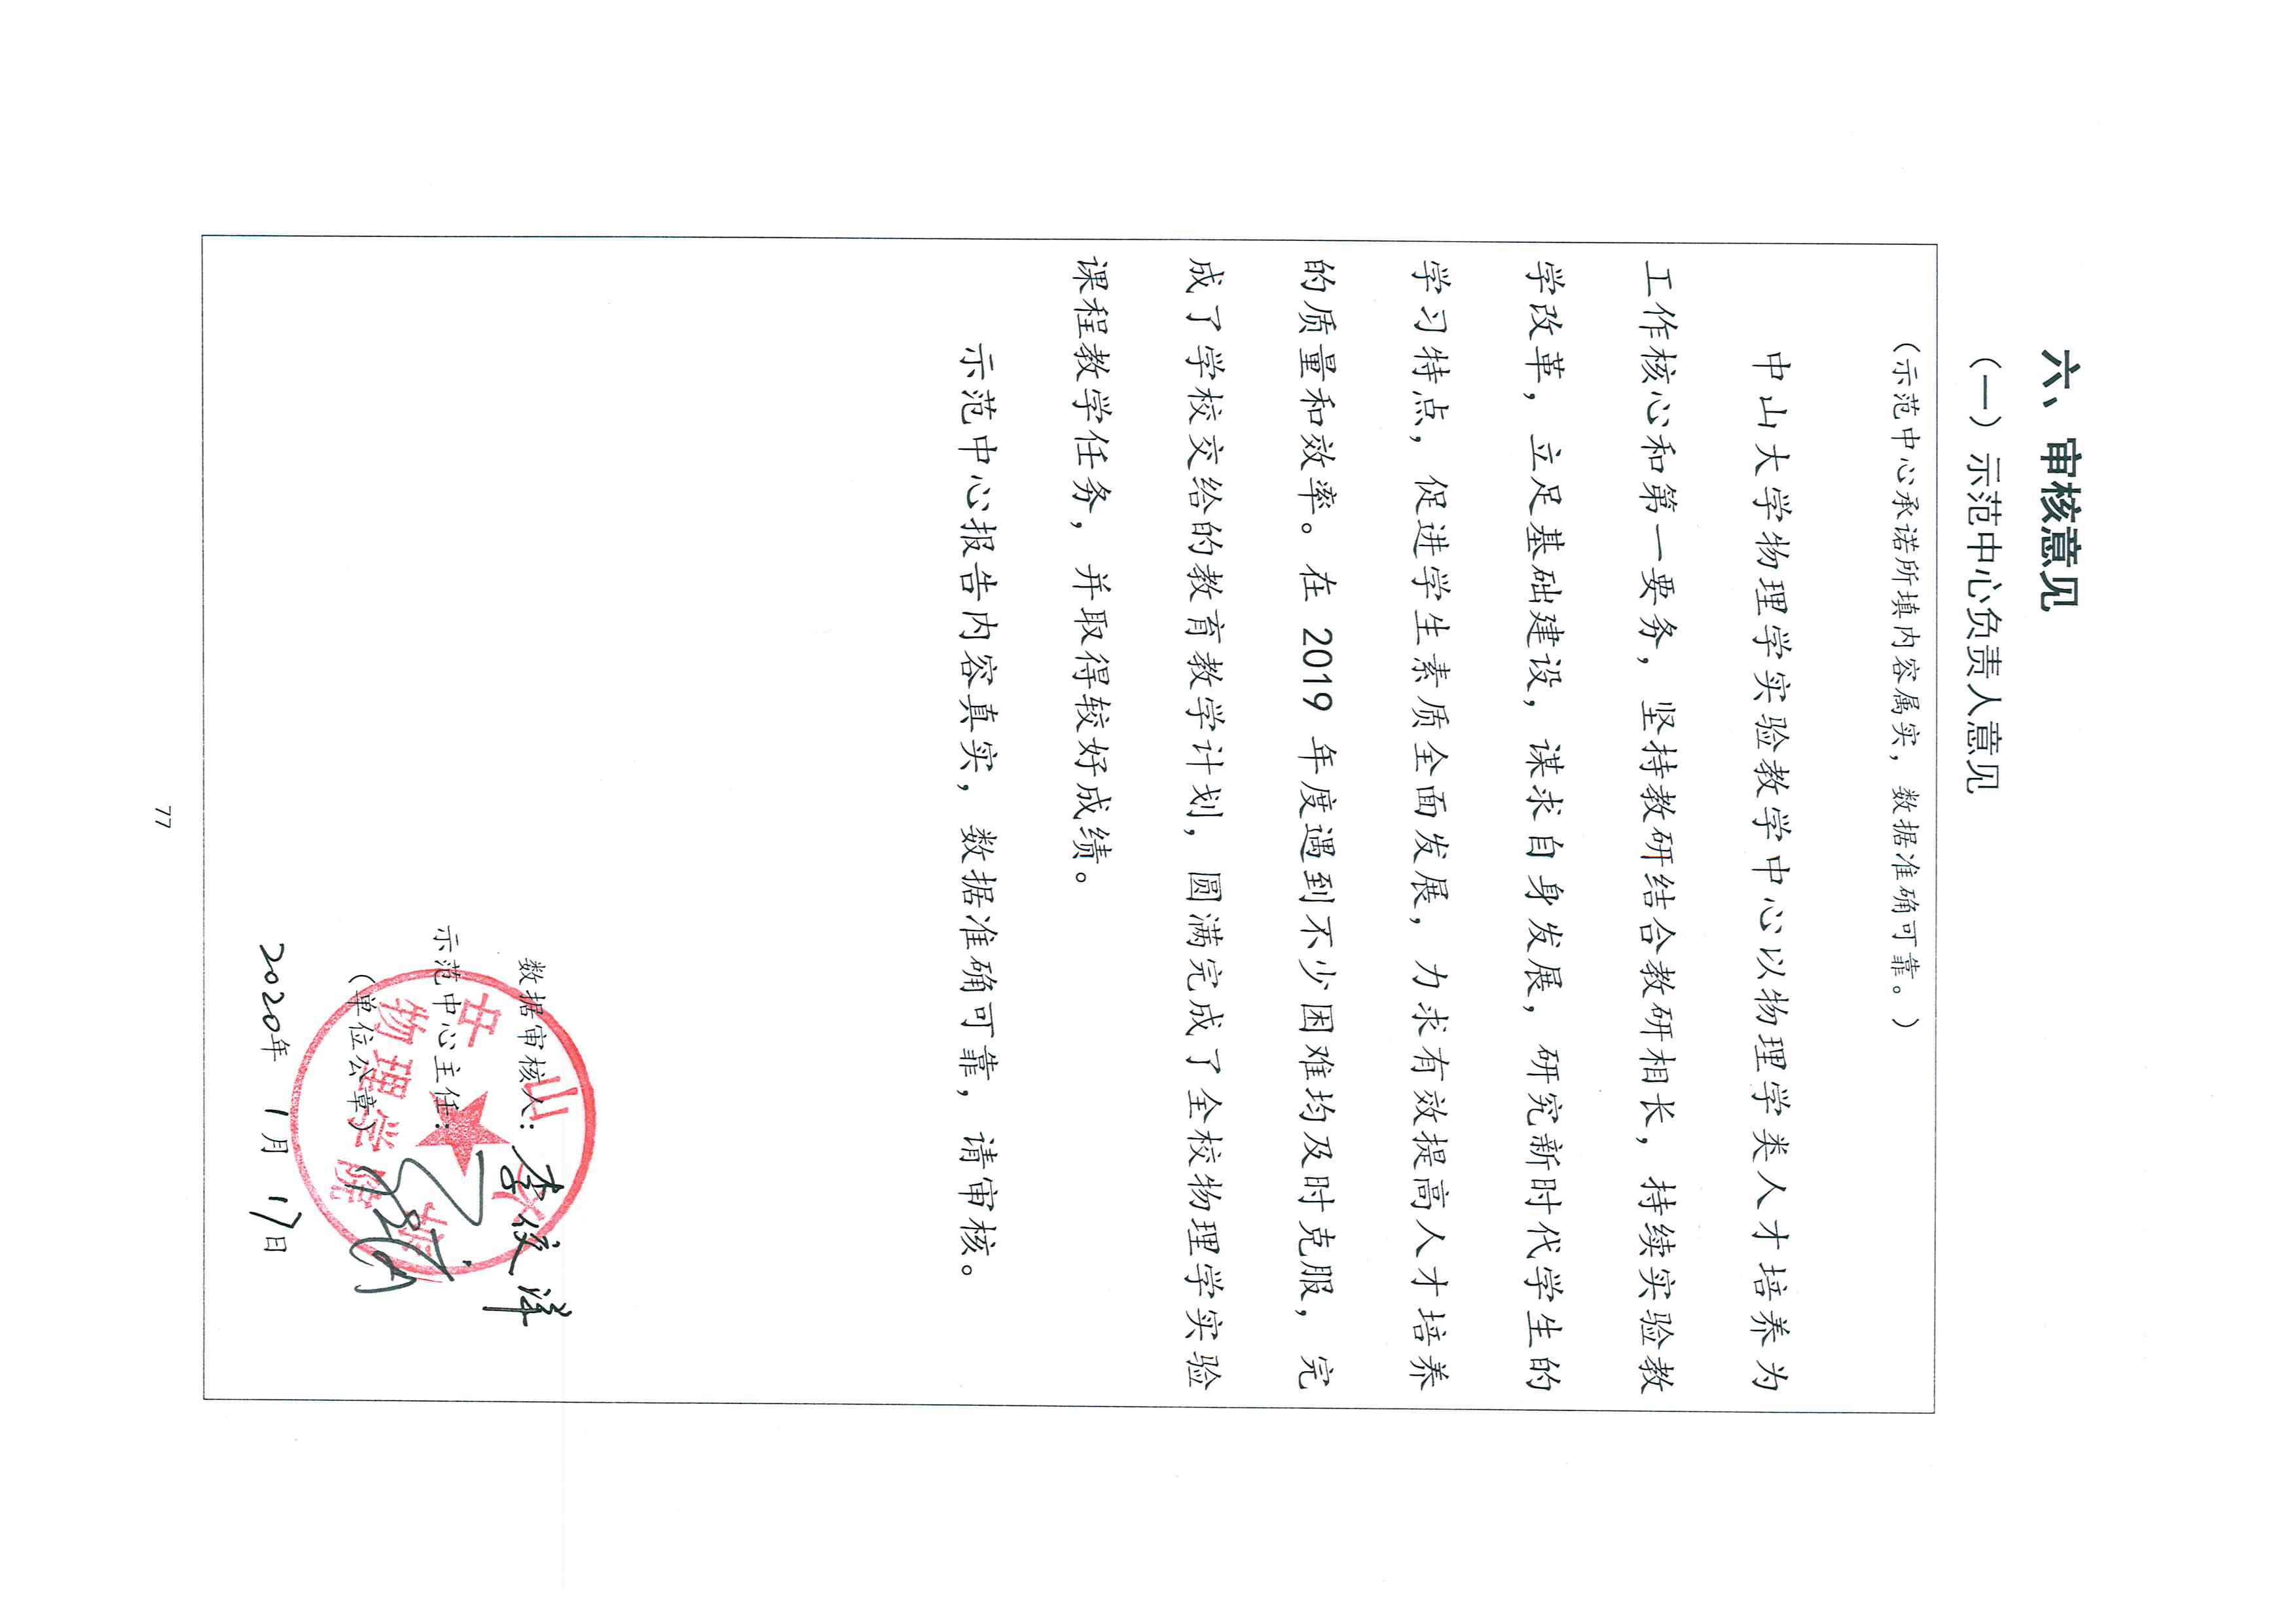 六、审核意见
（一）示范中心负责人意见
（示范中心承诺所填内容属实，数据准确可靠。）
中山大学物理学实验教学中心以物理学类人才培养为
工作核心和第一要务，坚持教研结合教研相长，持续实验教
学改革，立足基础建设，谋求自身发展，研究新时代学生的
学习特点，促进学生素质全面发展，力求有效提高人才培养
的质量和效率。在 2019 年度遇到不少困难均及时克服，完
成了学校交给的教育教学计划，圆满完成了全校物理学实验
课程教学任务，并取得较好成绩。
示范中心报告内容真实，数据准确可靠，请审核。
数据审核人：李俊洋
示范中心主任：
（单位公章）
中山大学
物理学院
2020年 1月 17日
77